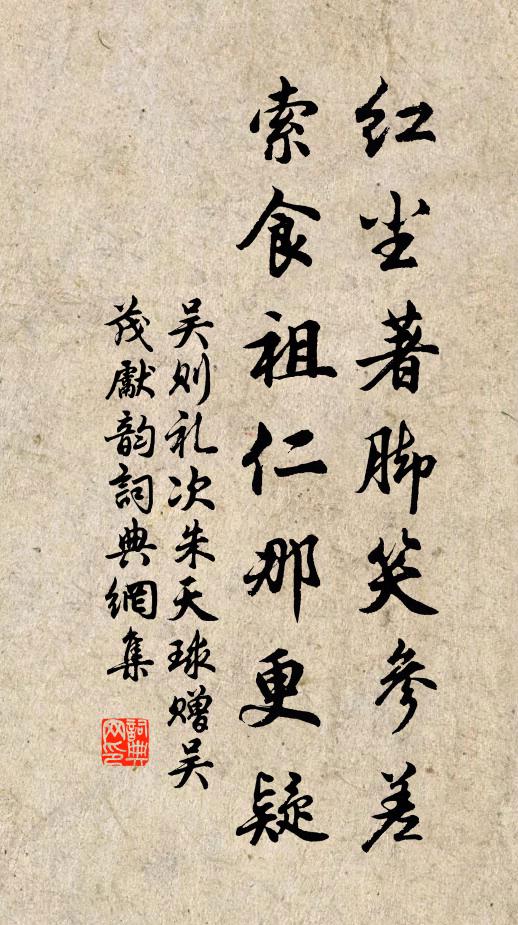 红尘著脚笑参差
索食祖仁那更疑
吴则礼次朱天球赠吴
茂献韵詞典網集
詞典网印